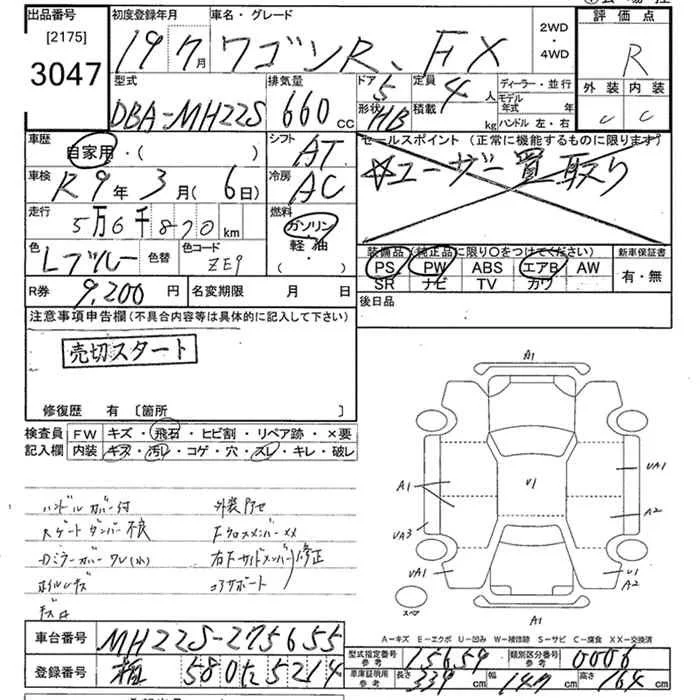 出品番号
[2175]
3047
初度登録年月
19 7月
車名・グレード
ワゴンR、FX
2WD・4WD
評価点
R
型式
DBA-MH22S
排気量
660cc
ドア 5
形状 HB
定員 4人
積載 kg
ディーラー・並行
モデル年式 年
ハンドル 左・右
外装 C
内装 C
車歴
自家用・( )
シフト
AT
セールスポイント (正常に機能するものに限ります)
☆ユーザー買取り
車検
R9年3月(6日)
冷房
AC
走行
5万6千870km
燃料
ガソリン・軽油
( ・ )
色
Lブルー
色替
色コード
ZE9
装備品(純正品に限り○をつけてください)
新車保証書
PS PW ABS エアB AW
有・無
SR ナビ TV カワ
R券
9,200円
名変期限 月 日
後日品
注意事項申告欄(不具合内容等は具体的に記入して下さい)
売切スタート
修復歴 有 [箇所 ]
検査員記入欄
FW キズ・飛石・ヒビ割・リペア跡・×要
内装 キズ・汚レ・コゲ・穴・スレ・キレ・破レ
ハンドルカバー付
外装色セ
Rゲートダンパー不良
FクロスメンバーXX
Dミラーカバーワレ(小)
右Fサイドメンバー修正
ホイルキズ
コアサポート
A1
A1
U1
UA1
A2
UA3
UA1
U1
A2
スペア
A1
A-キズ E-エクボ U-凹み W-補修跡 S-サビ C-腐食 XX-交換済
車台番号
MH22S-275655
型式指定番号
参考
15659
類別区分番号
参考
0006
登録番号
580た5214
車庫証明用
参考
長さ 339cm
幅 147cm
高さ 164cm